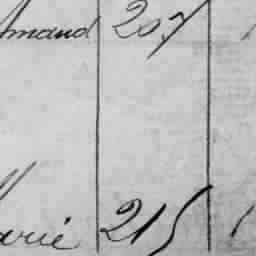 Amand 207
Marie 215